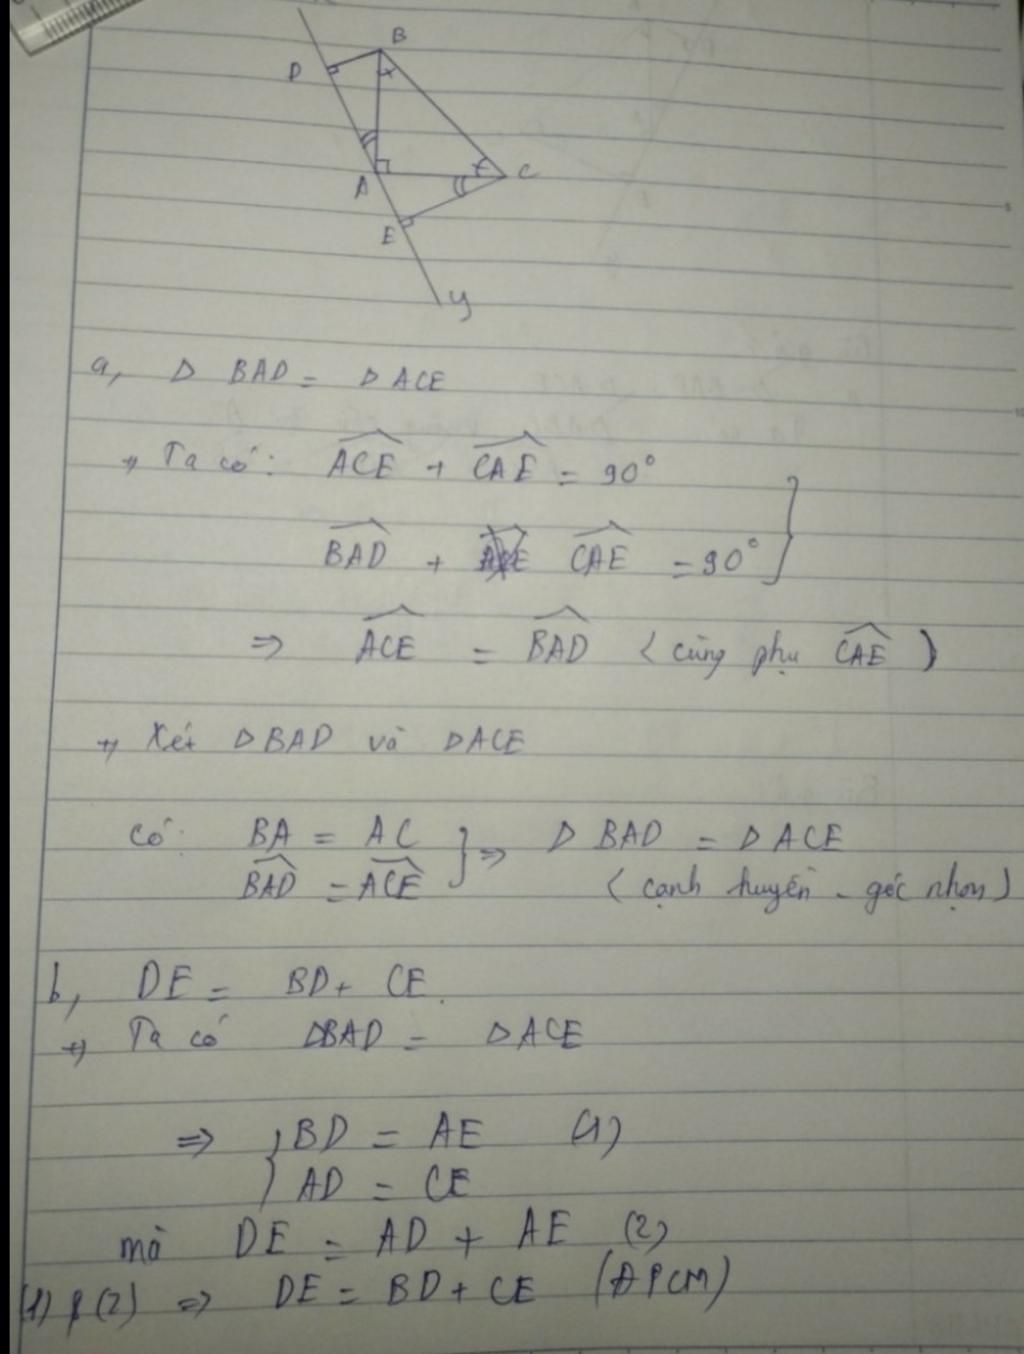 B
D
A
C
E
y
a, Δ BAD = Δ ACE
+, Ta có: ACE + CAE = 90°
BAD + CAE = 90°
⇒ ACE = BAD (cùng phụ CAE)
+, Xét Δ BAD và Δ ACE
có: BA = AC } ⇒ Δ BAD = Δ ACE
BAD = ACE (cạnh huyền - góc nhọn)
b, DE = BD + CE.
+, Ta có ΔBAD = Δ ACE
⇒ { BD = AE (1)
AD = CE
mà DE = AD + AE (2)
(1) & (2) ⇒ DE = BD + CE (ĐPCM)